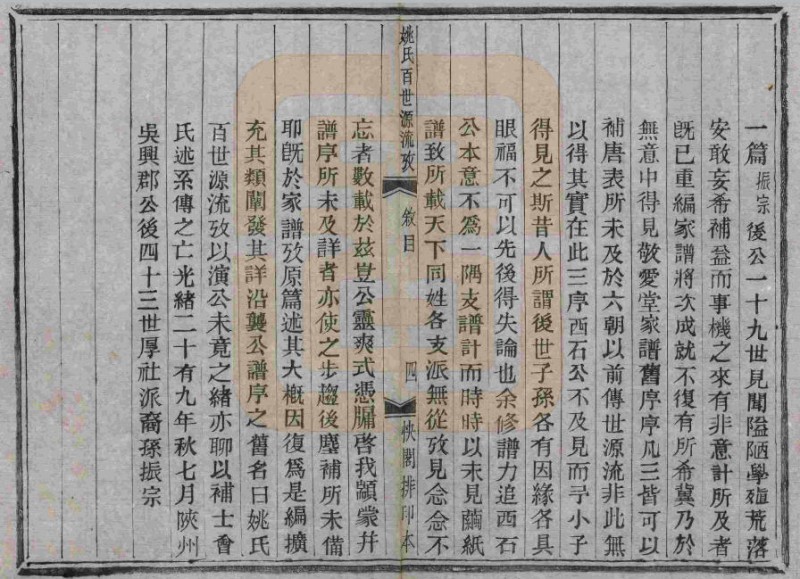 一篇振宗後公一十九世見聞隘陋學殖荒落
安敢妄希補益而事機之來有非意計所及者
既已重編家譜將次成就不復有所希冀乃於
無意中得見敬愛堂家譜舊序序凡三皆可以
補唐表所未及於六朝以前傳世源流非此無
以得其實在此三序西石公不及見而予小子
得見之斯昔人所謂後世子孫各有因緣各具
眼福不可以先後得失論也余修譜力追西石
公本意不爲一隅支譜計而時時以未見繭紙
譜致所載天下同姓各支派無從攷見念念不
姚氏百世源流攷
敘目
四
快閣排印本
忘者數載於兹豈公靈爽式憑牖啓我顓蒙幷
譜序所未及詳者亦使之步趨後塵補所未備
耶旣於家譜攷原篇述其大概因復爲是編擴
充其類闡發其詳沿襲公譜序之舊名曰姚氏
百世源流攷以演公未竟之緒亦聊以補士會
氏述系傳之亡光緒二十有九年秋七月陝州
吳興郡公後四十三世厚社派裔孫振宗